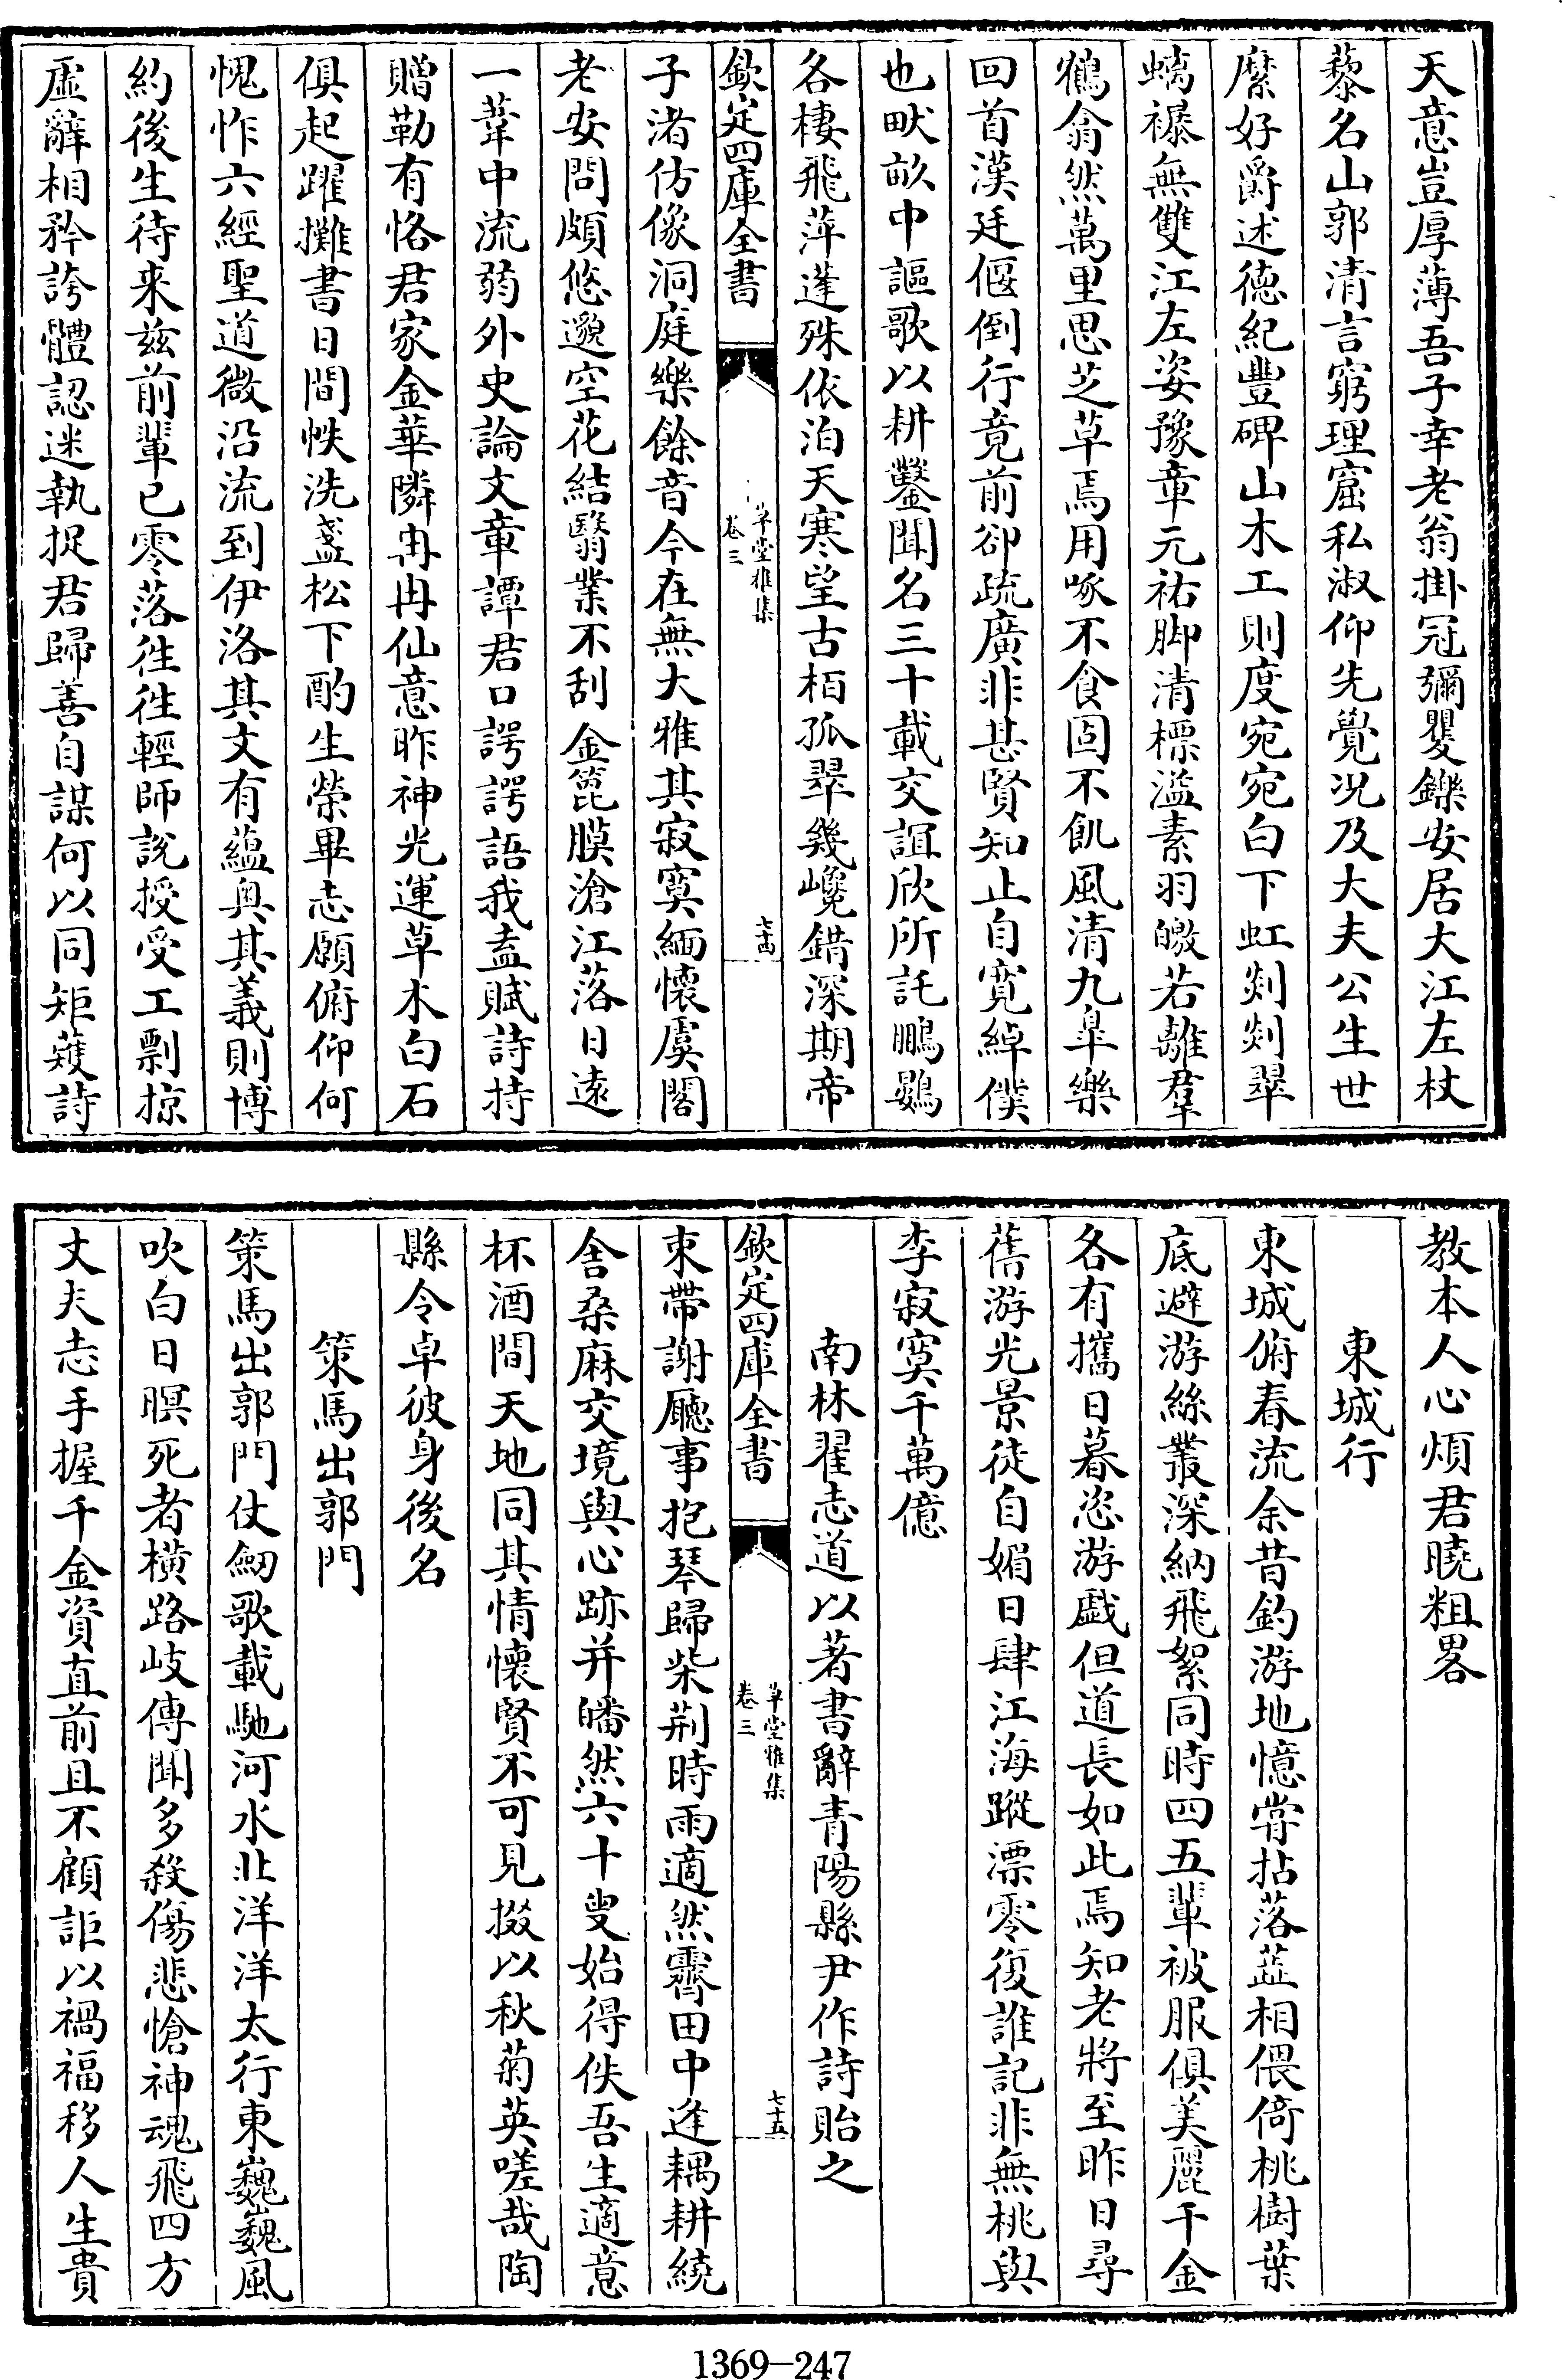 天意豈厚薄吾子幸老翁掛冠彌矍鑠安居大江左杖
藜名山郭清言窮理窟私淑仰先覺况及大夫公生世
縻好爵述德紀豐碑山木工則度宛宛白下虹剡剡翠
螭襮無雙江左姿豫章元祐脚清標溢素羽皦若離羣
鶴翕然萬里思芝草焉用啄不食固不飢風清九臯樂
回首漢廷偃倒行竟前卻疏廣非甚賢知止自寬綽僕
也畎畝中謳歌以耕鑿聞名三十載交誼欣所託鵬鷃
各棲飛萍蓬殊依泊天寒望古栢孤翠幾巉錯深期帝
欽定四庫全書
草堂雅集
卷三
七十四
子渚仿像洞庭樂餘音今在無大雅其寂寞緬懷虞閣
老安問頗悠邈空花結翳業不刮金篦膜滄江落日遠
一葦中流葯外史論文章譚君口諤諤語我盍賦詩持
贈勒有恪君家金華隣冉冉仙意昨神光運草木白石
俱起躍攤書日間帙洗盞松下酌生榮畢志願俯仰何
愧怍六經聖道微沿流到伊洛其文有蘊奥其義則博
約後生待来兹前輩已零落徃徃輕師說授受工剽掠
虛辭相矜誇體認迷執捉君歸善自謀何以同矩矱詩
教本人心煩君曉粗畧
東城行
東城俯春流余昔釣游地憶甞拈落蕋相偎倚桃樹葉
底避游絲叢深納飛絮同時四五輩被服俱美麗千金
各有攜日暮恣游戲但道長如此焉知老將至昨日尋
舊游光景徒自媚日肆江海蹤漂零復誰記非無桃與
李寂寞千萬億
南林翟志道以著書辭青陽縣尹作詩貽之
欽定四庫全書
草堂雅集
卷三
七十五
束帶謝廳事抱琴歸柴荆時雨適然霽田中逢耦耕繞
舍桑麻交境與心跡并皤然六十叟始得佚吾生適意
杯酒間天地同其情懷賢不可見掇以秋菊英嗟哉陶
縣令卓彼身後名
策馬出郭門
策馬出郭門仗劒歌載馳河水北洋洋太行東巍巍風
吹白日暝死者横路岐傳聞多殺傷悲愴神魂飛四方
丈夫志手握千金資直前且不顧詎以禍福移人生貴
1369—247